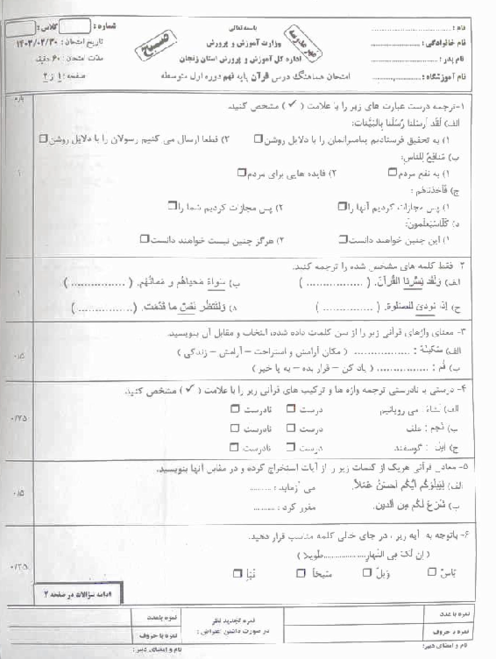 نام :
باسمه تعالی
شماره :
کلاس :
نام خانوادگی :
وزارت آموزش و پرورش
تاریخ امتحان : ۱۴۰۳/۰۲/۳۰
نام پدر :
اداره کل آموزش و پرورش استان زنجان
مدت امتحان : ۶۰ دقیقه
نام آموزشگاه :
امتحان هماهنگ درس قرآن پایه نهم دوره اول متوسطه
صفحه : ۱ از ۲
مهر مدرسه
صبح
۱-ترجمه درست عبارت های زیر را با علامت ( ✓ ) مشخص کنید.
الف) لَقَد أَرسَلنا رُسُلَنا بِالبَیِّناتِ:
۱) به تحقیق فرستادیم پیامبرانمان را با دلایل روشن □ ۲) قطعا ارسال می کنیم رسولان را با دلایل روشن □
ب) مَنافِعُ لِلنّاسِ:
۱) به نفع مردم □ ۲) فایده هایی برای مردم □
ج) فَأَخَذتُهُم :
۱) پس مجازات کردیم آنها را □ ۲) پس مجازات کردیم شما را □
د) کَلّا سَیَعلَمونَ:
۱) این چنین خواهند دانست □ ۲) هرگز چنین نیست خواهند دانست □
۲- فقط کلمه های مشخص شده را ترجمه کنید.
الف) وَ لَقَد یَسَّرنَا القُرآنَ. ( ............... ) ب) سَواءً مَحیاهُم وَ مَماتُهُم. ( ............... )
ج) إذا نودِیَ لِلصَّلوةِ. ( ............... ) د) وَلتَنظُر نَفسٌ ما قَدَّمَت. ( ............... )
۳- معنای واژهای قرآنی زیر را از بین کلمات داده شده، انتخاب و مقابل آن بنویسید.
الف) سَکینَة : ............... ( مکان آرامش و استراحت – آرامش – زندگی )
ب) قُم : ............... ( یاد کن – قرار بده – به پا خیز )
۴- درستی یا نادرستی ترجمه واژه ها و ترکیب های قرآنی زیر را با علامت ( ✓ ) مشخص کنید.
درست □ نادرست □
ب) نُجِم : درست □ نادرست □
ج) : گوسفند درست □ نادرست □
۵- معادل قرآنی هریک از کلمات زیر را از آیات استخراج کرده و در مقابل آنها بنویسید.
الف) لِیَبلُوَکُم أَیُّکُم أَحسَنُ عَمَلاً. می آزماید : ........
ب) شَرَعَ لَکُم مِنَ الدّینِ. مقرر کرد : ........
۶- باتوجه به آیه زیر ، در جای خالی کلمه مناسب قرار دهید.
( إنَّ لَکَ فِی النَّهارِ...............طَویلاً )
بَأسٌ □ وَیلٌ □ سَبحاً □
ادامه سوالات در صفحه ۲
نمره با عدد
نمره تجدید نظر
نمره باعدد
نمره با حروف
در صورت داشتن اعتراض :
نمره با حروف
نام و امضای دبیر:
نام و امضای دبیر :